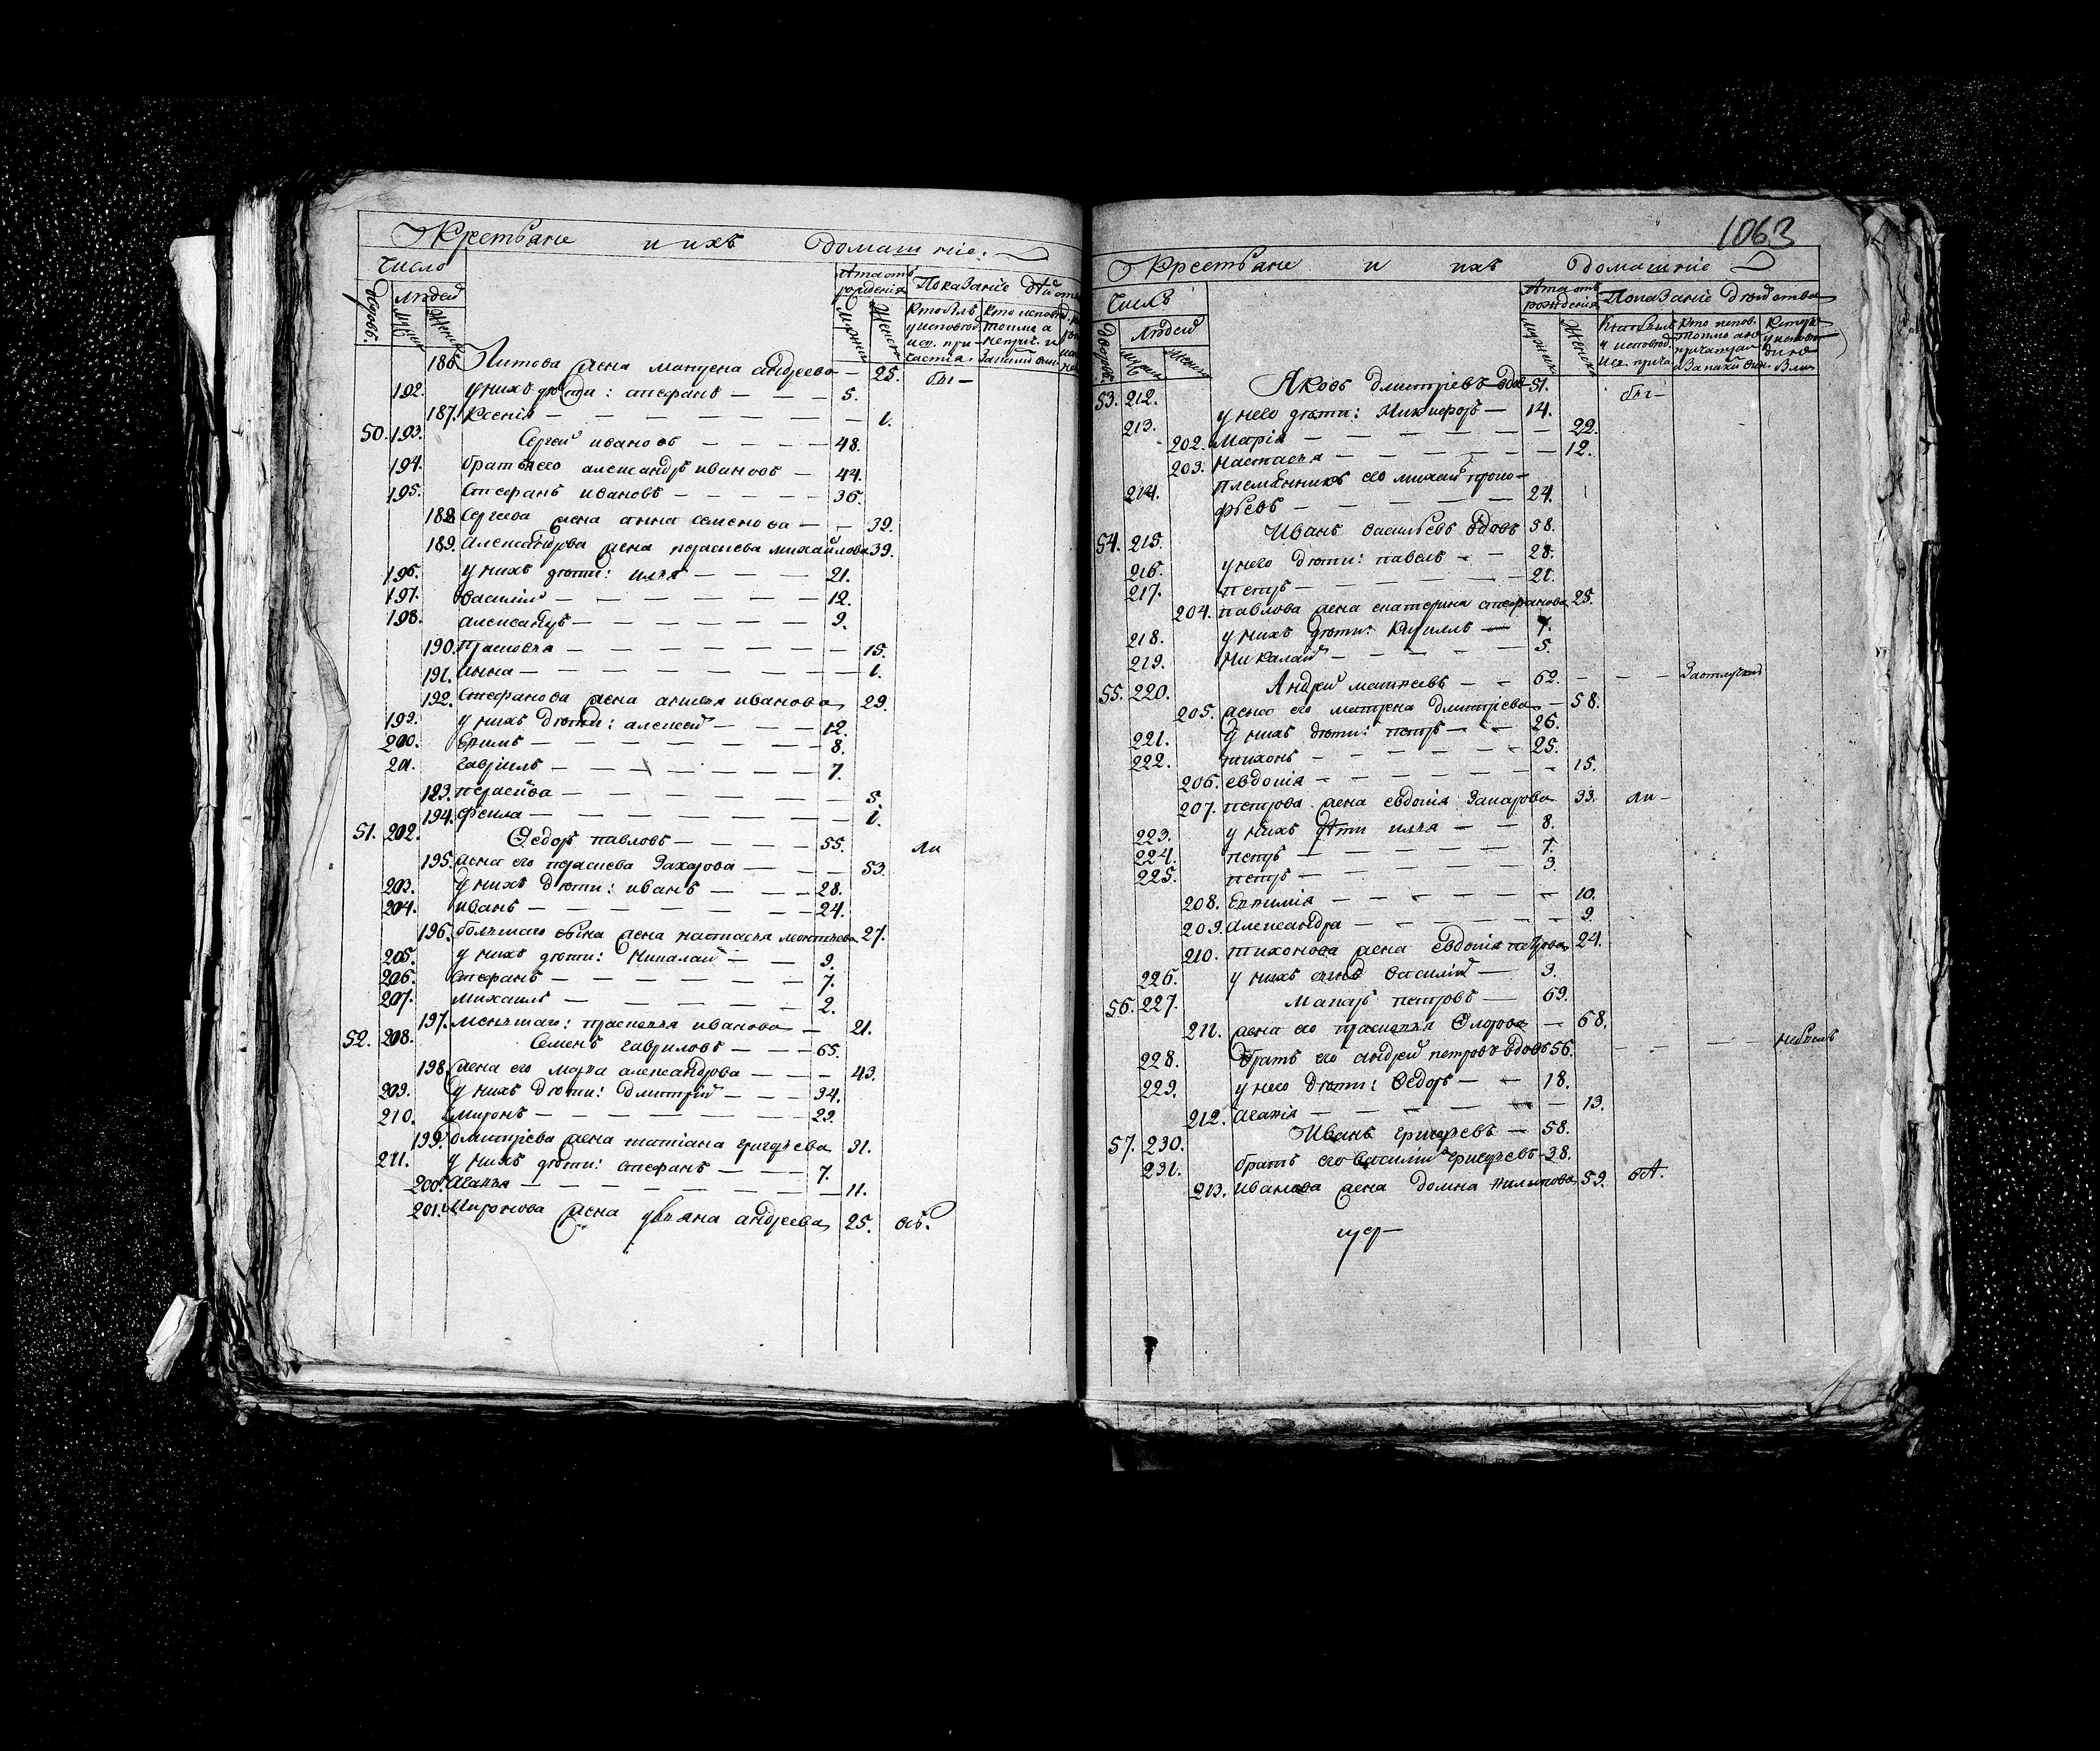 Крестьяне и ихъ домашніе.
Число
людей
Лѣта отъ рожденія
Показаніе дѣйств
186. Титова жена матрена андреева — 25. бы—
192. у нихъ дѣти: стефанъ — — — 5.
187. Ксенія — — — — — 1.
50. 193. Сергей ивановъ — — — — 48.
194. братъ его александръ ивановъ — 44.
195. Стефанъ ивановъ — — — — — 36.
188. Сергеева жена анна семенова — — 39.
189. Александрова жена параскева михайлова 39.
196. у нихъ дѣти: илья — — — — 21.
197. василій — — — — — 12.
198. александръ — — — — — 9.
190. Прасковья — — — — — — 15.
191. Анна — — — — — — 1.
192. Стефанова жена анисья иванова 29.
199. у нихъ дѣти: алексей — — — 12.
200. Ефимъ — — — — — — 8.
201. гавріилъ — — — — — — 7.
193. параскева — — — — — — 5.
194. фекла — — — — — — 1.
51. 202. Ѳедоръ павловъ — — — — 55. ли
195. жена его параскева Захарова — — — 53.
203. у нихъ дѣти: иванъ — — — 28.
204. иванъ — — — — — — 24.
196. большаго сына жена настасья леонтьева 27.
205. у нихъ дѣти: Николай — — 9.
206. Стефанъ — — — — — 7.
207. михаилъ — — — — — 2.
197. меньшаго: прасковья иванова — 21.
52. 208. Семенъ гавриловъ — — — 65.
198. жена его марѳа александрова — — — 43.
209. у нихъ дѣти: дмитрій — — — 34.
210. миронъ — — — — — — 29.
199. дмитріева жена татіана григорьева 31.
211. у нихъ дѣти: стефанъ — — — 7.
200. Агафья — — — — — — — 11.
201. Миронова жена ульяна андреева 25.
1063
Крестьяне и ихъ домашніе
Число
людей
Лѣта отъ рожденія
Показаніе дѣйства
53. 212. Яковъ дмитріевъ вдов 51. бы—
213. у него дѣти: Никифоръ — 14.
202. Марія — — — — — — 22.
203. настасья — — — — — 12.
214. племянникъ его михаил проко—
фьевъ — — — — — 24.
54. 215. Иванъ васильевъ вдовъ 58.
216. у него дѣти: павелъ — — 28.
217. петръ — — — — — — 21.
204. павлова жена екатерина стефанова 25.
218. у нихъ дѣти: Кириллъ — 7.
219. Николай — — — — — 5.
55. 220. Андрей матвеевъ — — 62. — — —
205. жена его матрена дмитріева — 58.
221. у нихъ дѣти: петръ — — — 26.
222. тихонъ — — — — — 25.
206. евдокія — — — — — — 15.
207. петрова жена евдокія Захарова 33. ли—
223. у нихъ дѣти илья — — 8.
224. петръ — — — — — 7.
225. петръ — — — — — 3.
208. Евфимія — — — — — 10.
209. александра — — — — — 9.
210. тихонова жена евдокія петрова 24.
226. у нихъ сынъ василій — 3.
56. 227. Макаръ петровъ — 69.
211. жена его прасковья Ѳедорова — 68.
228. братъ его андрей петровъ вдовъ 56. — — — небылъ
229. у него дѣти: Ѳедоръ — — 18.
212. Агафія — — — — — — 13.
57. 230. Иванъ григорьевъ — 58.
231. братъ его василій григорьевъ — 38.
213. иванова жена домна филипова 59.